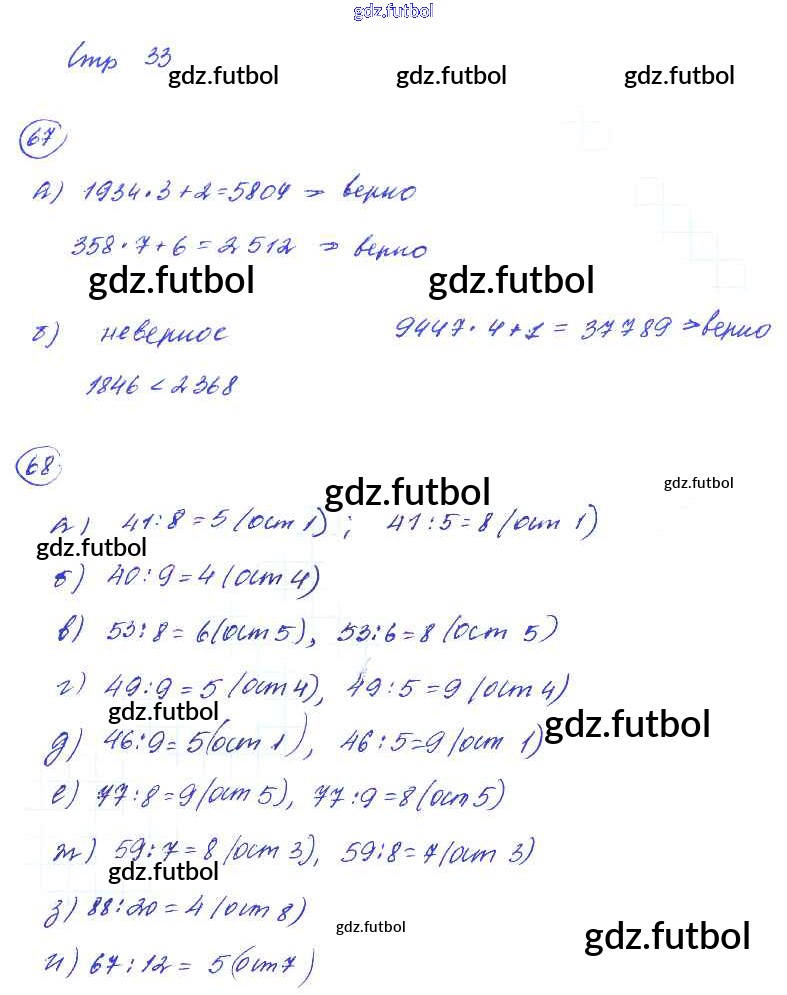 gdz.futbol
Стр 33
gdz.futbol gdz.futbol gdz.futbol
67
а) 1934·3+2=5804 => верно
358·7+6=2512 => верно
gdz.futbol gdz.futbol
б) неверное 9447·4+1=37789 => верно
1846<2368
68
gdz.futbol gdz.futbol
а) 41:8=5(ост 1); 41:5=8(ост 1)
gdz.futbol
б) 40:9=4(ост 4)
в) 53:8=6(ост 5), 53:6=8(ост 5)
г) 49:9=5(ост 4), 49:5=9(ост 4)
gdz.futbol gdz.futbol
д) 46:9=5(ост 1), 46:5=9(ост 1)
е) 77:8=9(ост 5), 77:9=8(ост 5)
ж) 59:7=8(ост 3), 59:8=7(ост 3)
gdz.futbol
з) 88:20=4(ост 8)
gdz.futbol gdz.futbol
и) 67:12=5(ост 7)